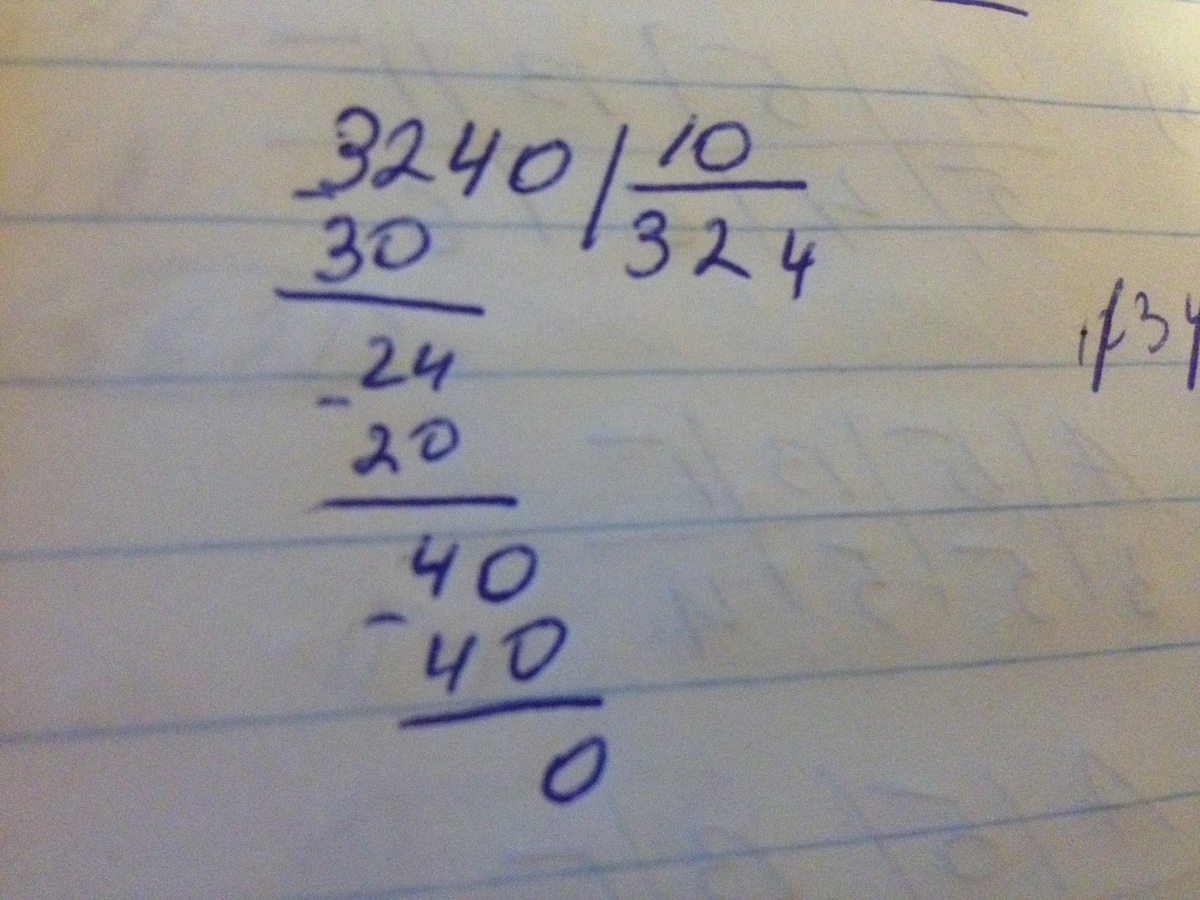 3240 | 10
- 30
324
24
- 20
40
- 40
0